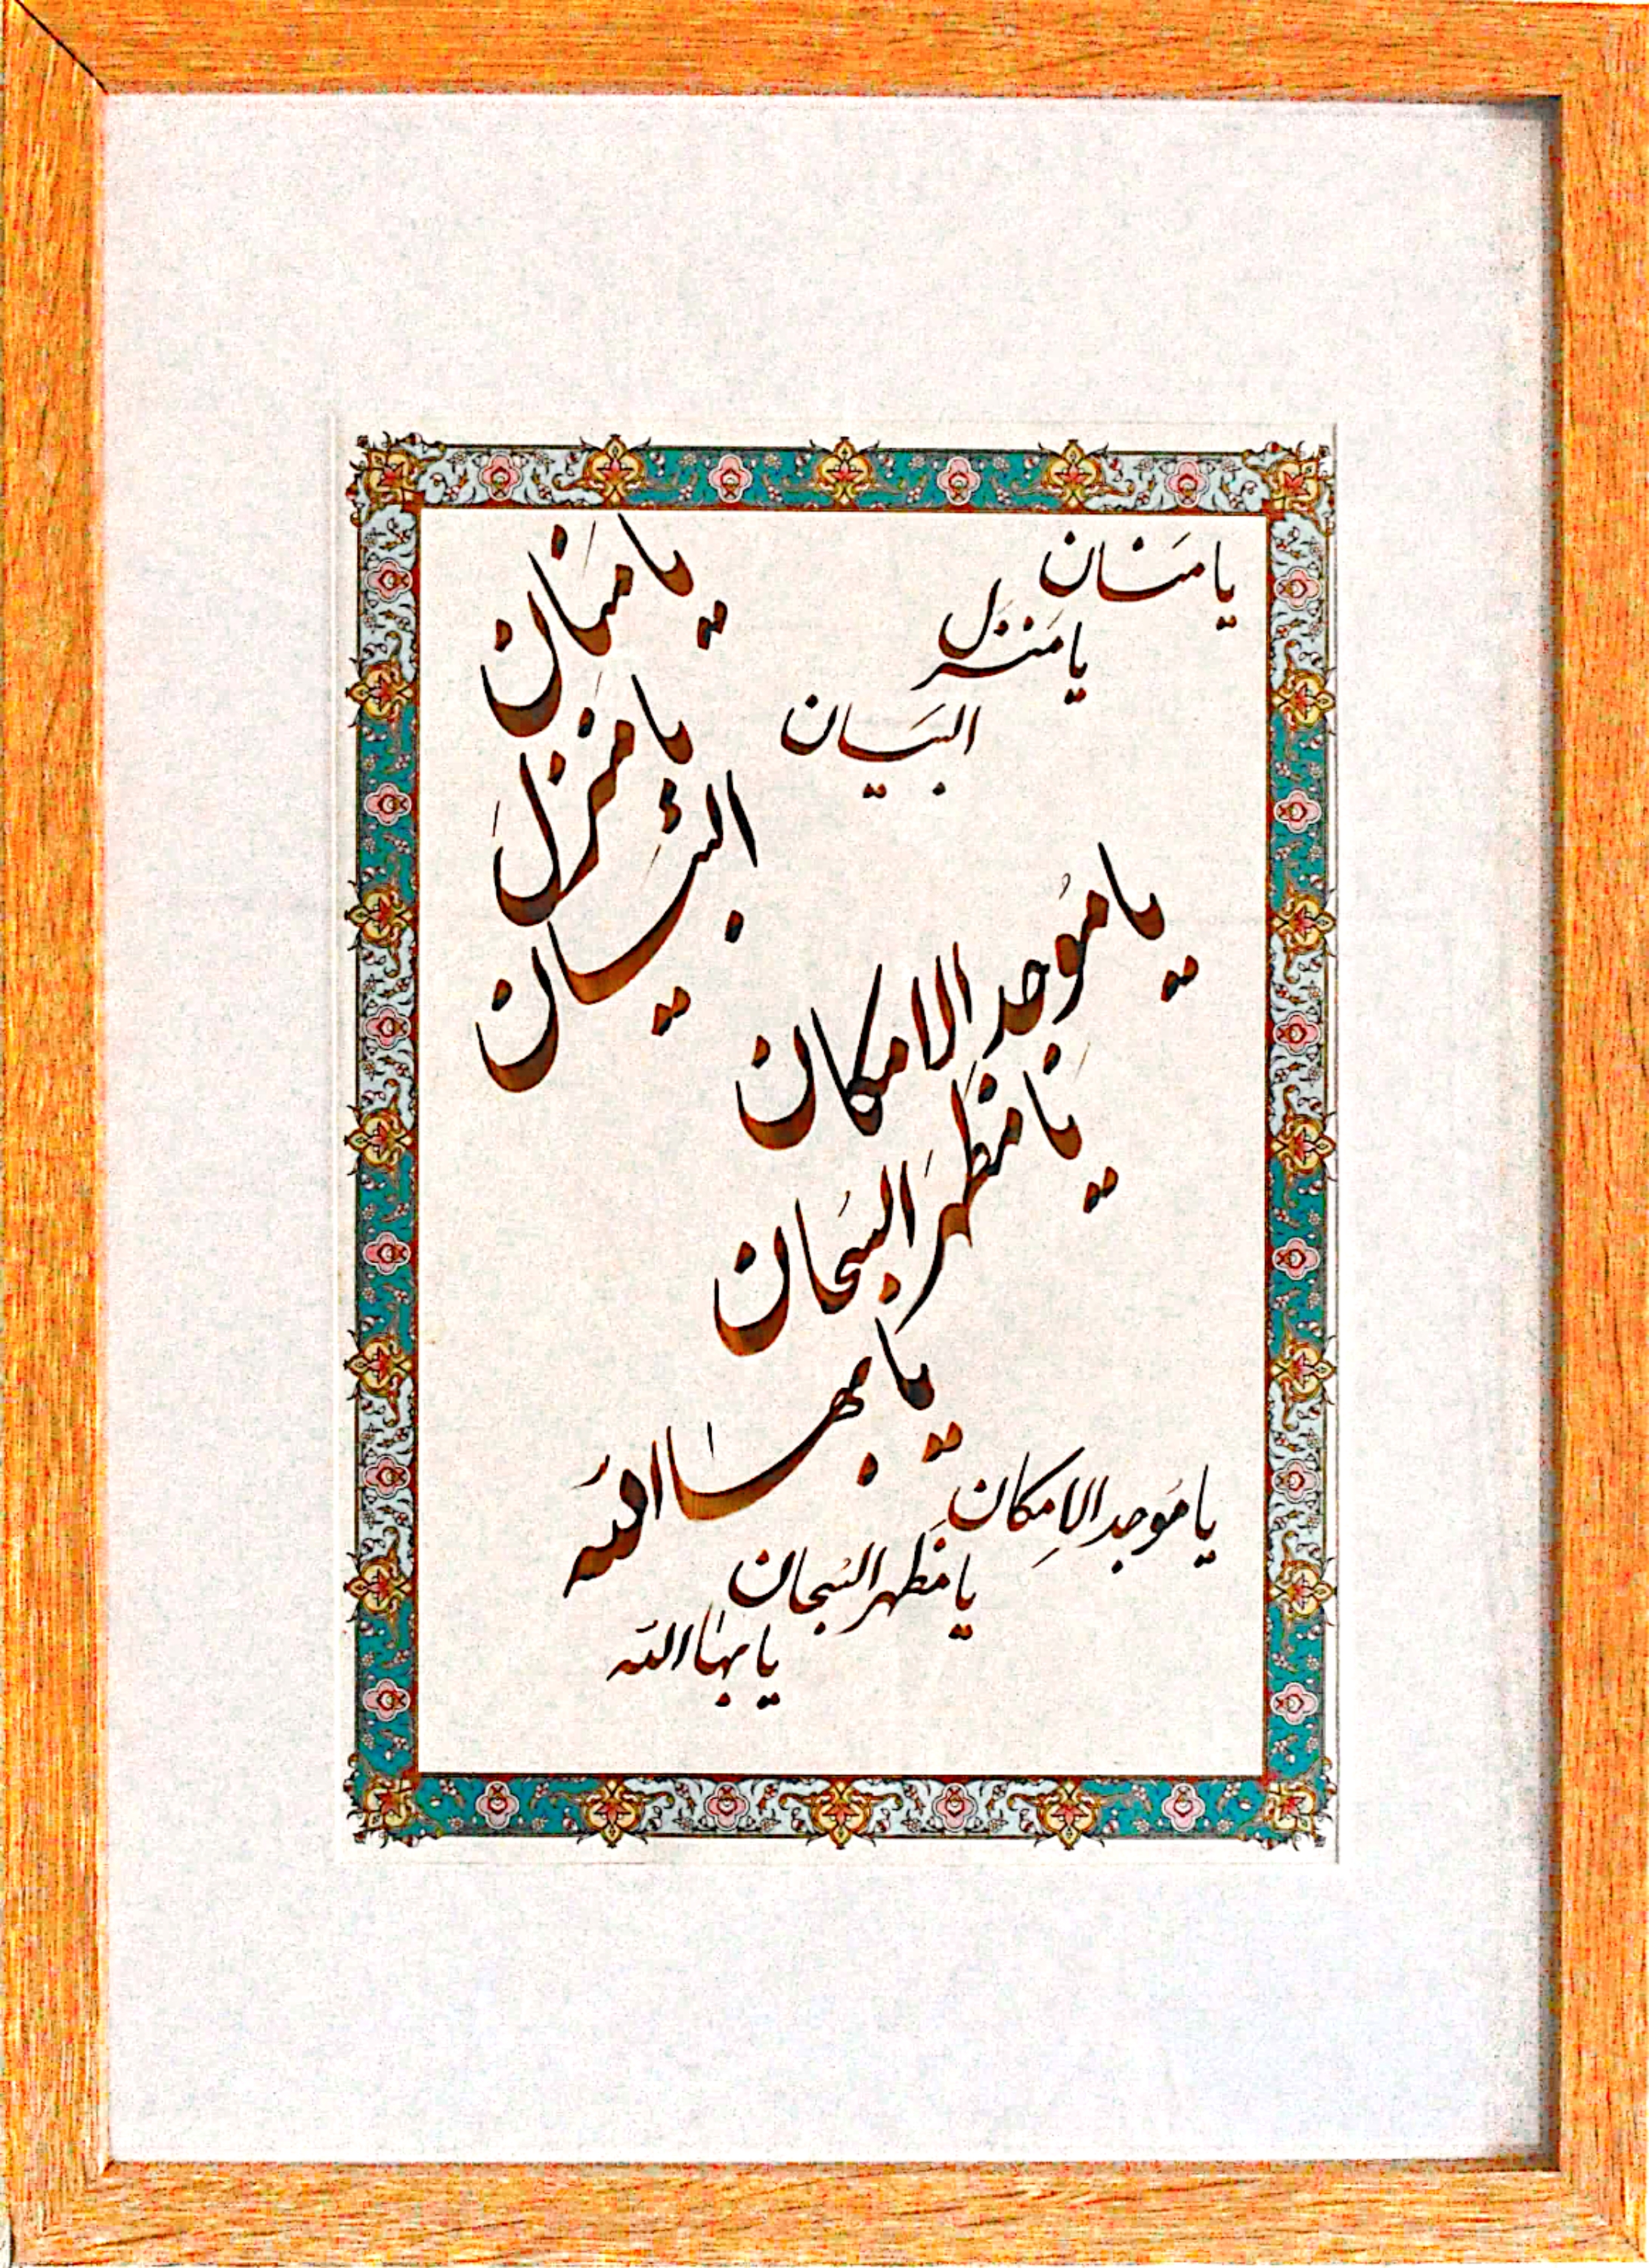 يا مَنّان
يا مَنزل
البَيان
يا مَنّان
يا منزلَ
البَيان
يا مُوجد الامكان
يا مَظهَر السُبحان
يا بهاءالله
يا مُوجد الاِمكان
يا مَظهر السُبحان
يا بهاءالله